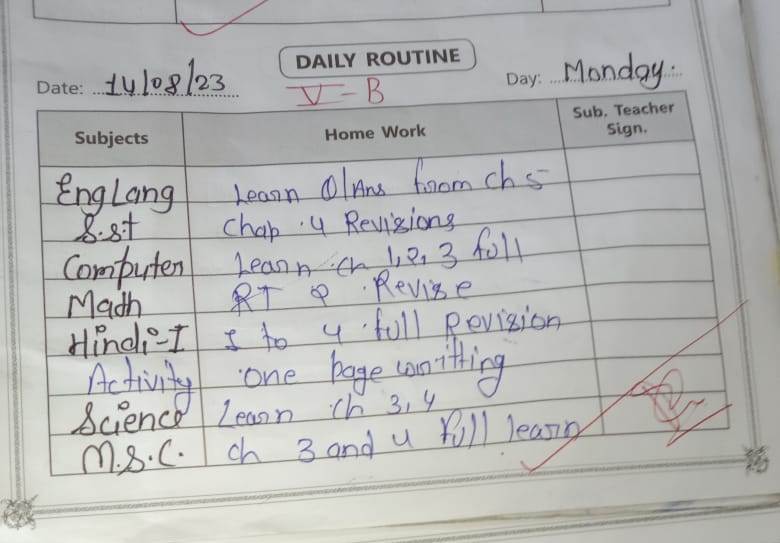 DAILY ROUTINE
Date: 14/08/23 Day: Monday.
V-B
Subjects Home Work Sub. Teacher Sign.
Eng Lang Learn Q/Ans from ch 5
S.st Chap.4 Revisions
Computer Learn ch 1, 2, 3 full
Math RT Revise
Hindi-I 1 to 4 full Revision
Activity one page writting
Science Learn ch 3, 4
M.S.C. ch 3 and 4 full learn